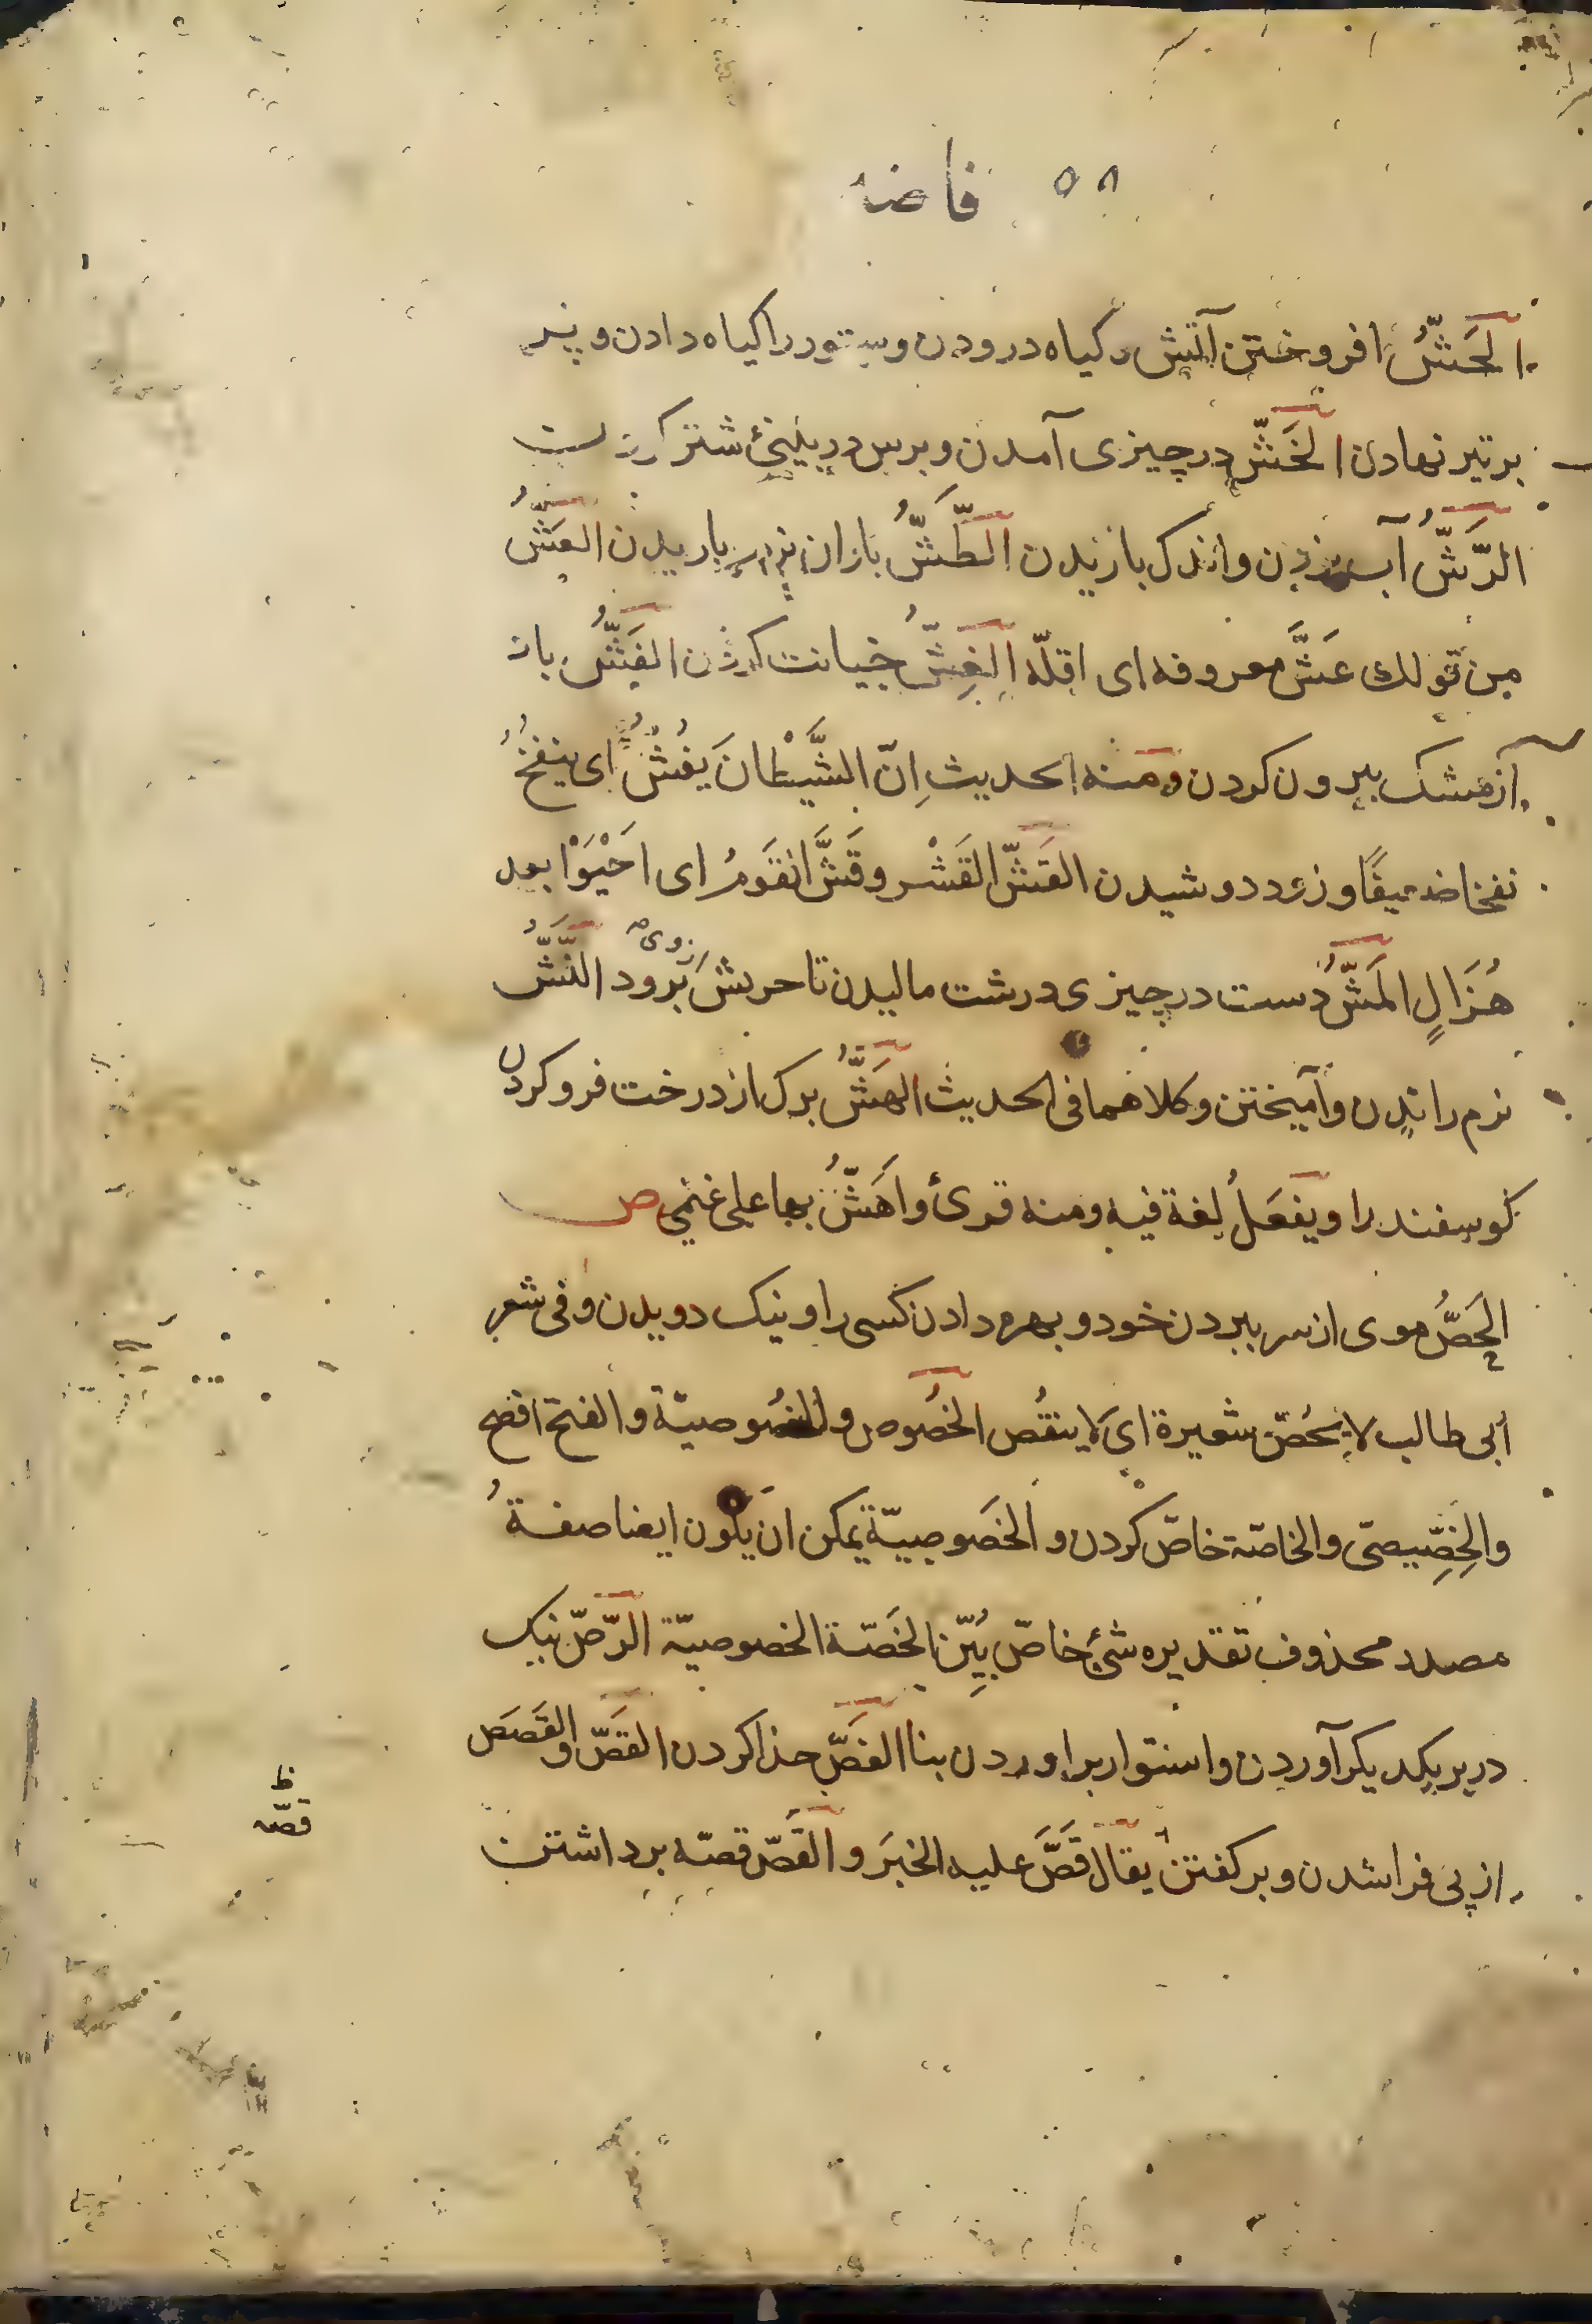 ٥٨ فاضه
الحَشُّ افروختن آتش و کیاه درودن و ستور را کیاه دادن و پر
بر تیر نهادن الخَشّ در چیزی آمدن و برس در بینئ شتر کردن
الرَّشُّ آب زدن و اندک باریدن الطَّشُّ باران نرم باریدن العَشُّ
من قولك عَشَّ معروفه ای اقلّه الغِشُّ خیانت کردن الفَشُّ باد
از مشک بیرون کردن ومنه الحدیث اِنّ الشَّیْطانَ یَفُشُّ ای ینفخُ
نفخا ضعیفًا و زود دوشیدن القَشّ القَشْر وقَشَّ القَومُ ای اَحْیَوْا بعد
هُزَالٍ المَشُّ دست در چیزی درشت مالیدن تا حربش زوی برود النَّشُّ
نرم راندن و آمیختن و کلاهما فی الحدیث الهَشُّ برک از درخت فرو کردن
کوسفند را و یفعَلُ لغة فیه ومنه قرئ واَهَشُّ بها علی غنمی ص
الحَصُّ موی از سر ببردن خود و بهره دادن کسی را و نیک دویدن و فی شعر
أبی طالب لا یَحُصّ شعیرة ای لا ینقُص الخُصُوص و الخُصُوصیّة والفتح افصح
والخِصِّیصَی والخاصّة خاصّ کردن و الخَصوصیّة یمکن ان یکون ایضا صفةُ
مصدر محذوف تقدیره شئ خاصّ بیِّن الخَصّة الخصوصیّة الرَّصّ نیک
در بر یکدیکر آوردن و استوار براوردن بنا الغَصّ جدا کردن القَصّ والقَصَص
از پی فرا شدن و بر کفتن یقال قَصَّ علیه الخبَرَ و القَصّ قصّه برداشتن
ظ
قصّه